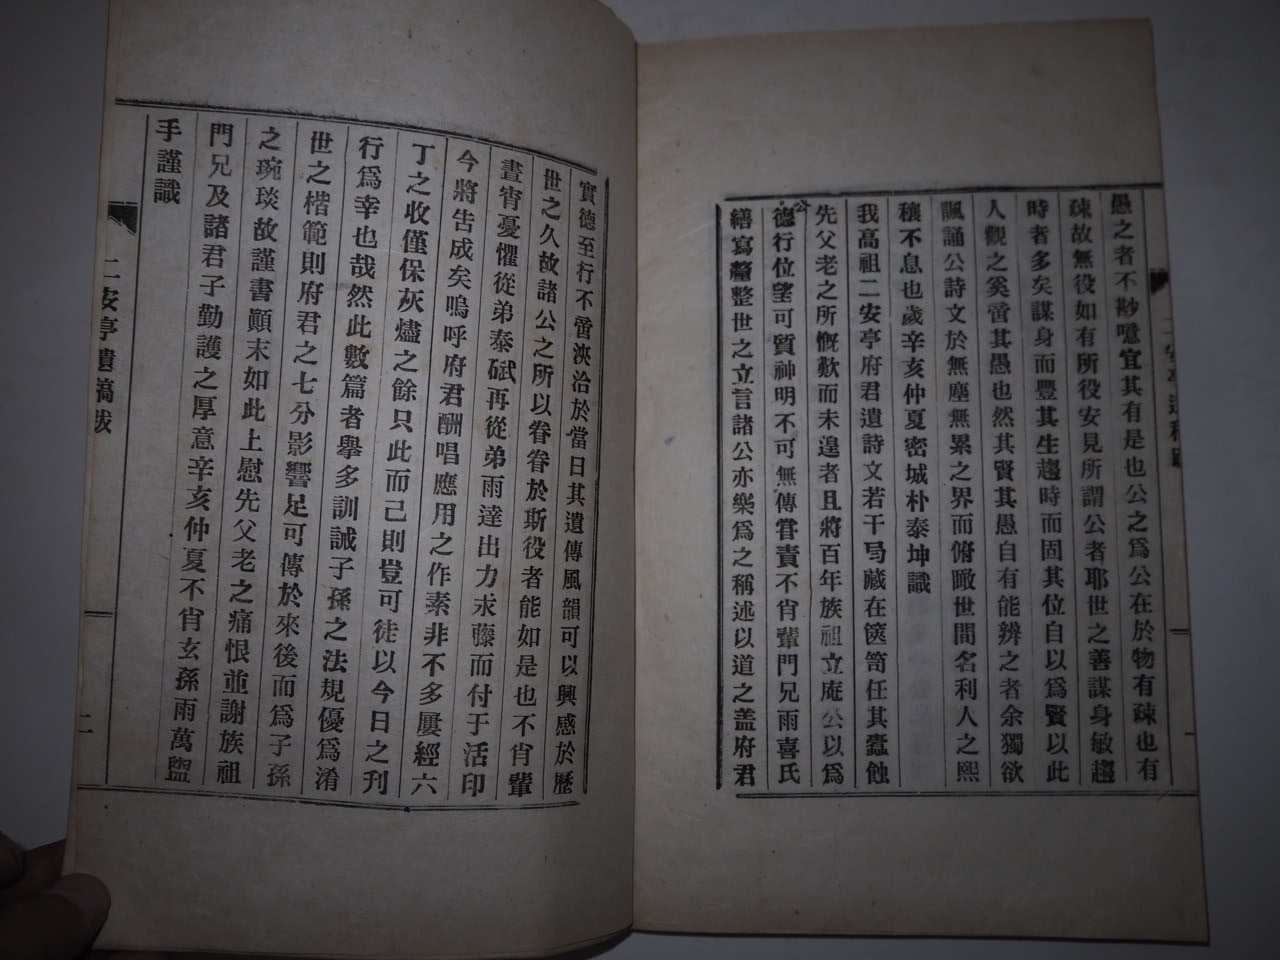 愚之者不尠噫宜其有是也公之爲公在於物有疎也有
疎故無役如有所役安見所謂公者耶世之善謀身敏趨
時者多矣謀身而豐其生趨時而固其位自以爲賢以此
人觀之奚啻其愚也然其賢其愚自有能辨之者余獨欲
諷誦公詩文於無塵無累之界而俯瞰世間名利人之熙
穰不息也歲辛亥仲夏密城朴泰坤識
我高祖二安亭府君遺詩文若干弓藏在篋笥任其蠹蝕
先父老之所慨歎而未遑者且將百年族祖立庵公以爲
公德行位望可質神明不可無傳嘗責不肖輩門兄雨喜氏
繕寫釐整世之立言諸公亦樂爲之稱述以道之盖府君
實德至行不啻浹洽於當日其遺傳風韻可以興感於歷
世之久故諸公之所以眷眷於斯役者能如是也不肖輩
晝宵憂懼從弟泰碔再從弟雨達出力求藤而付于活印
今將告成矣嗚呼府君酬唱應用之作素非不多屢經六
丁之收僅保灰燼之餘只此而己則豈可徒以今日之刊
行爲幸也哉然此數篇者擧多訓誡子孫之法規優爲淆
世之楷範則府君之七分影響足可傳於來後而爲子孫
之琬琰故謹書顚末如此上慰先父老之痛恨並謝族祖
門兄及諸君子勤護之厚意辛亥仲夏不肖玄孫雨萬盥
手謹識
二安亭遺稿跋
二